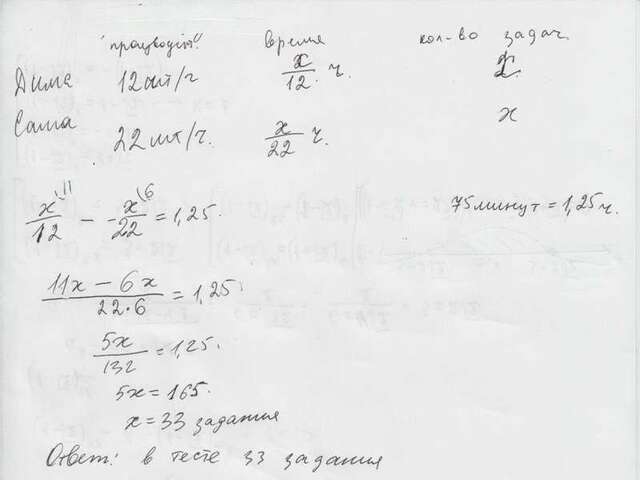 "производит." время кол-во задач.
Дима 12шт/ч x/12 ч. x
Саша 22шт/ч. x/22 ч. x
x\11/12 - x\6/22 = 1,25. 75минут = 1,25 ч.
11x - 6x / 22·6 = 1,25
5x/132 = 1,25.
5x = 165.
x = 33 задания
Ответ: в тесте 33 задания